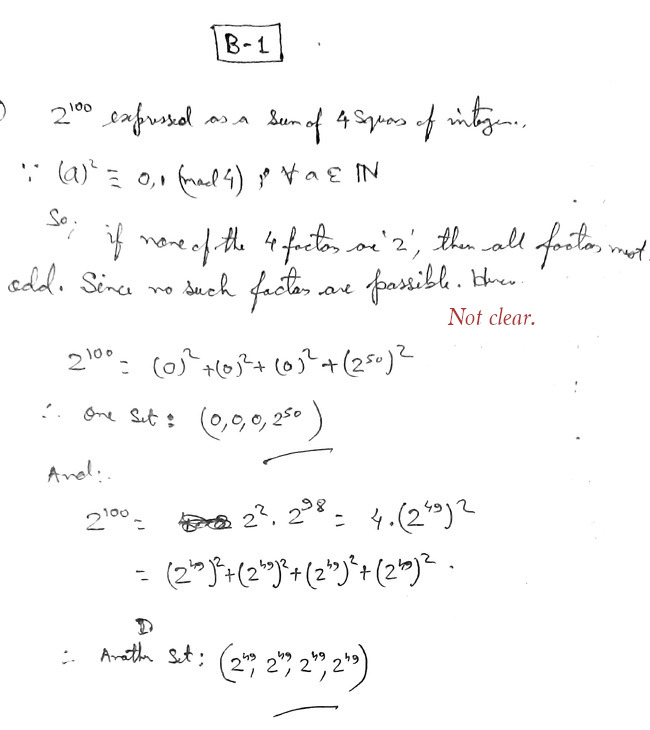 B-1
) 2^100 expressed as a sum of 4 squares of integers.
∵ (a)^2 ≡ 0,1 (mod 4) ; ∀ a ∈ ℕ
So, if none of the 4 factors are '2', then all factors must
odd. Since no such factors are possible. Hence.
Not clear.
2^100 = (0)^2 + (0)^2 + (0)^2 + (2^50)^2
∴ One Set : (0, 0, 0, 2^50)
And:.
2^100 = 2^2 . 2^98 = 4 . (2^49)^2
= (2^49)^2 + (2^49)^2 + (2^49)^2 + (2^49)^2 .
∴ Another Set : (2^49, 2^49, 2^49, 2^49)